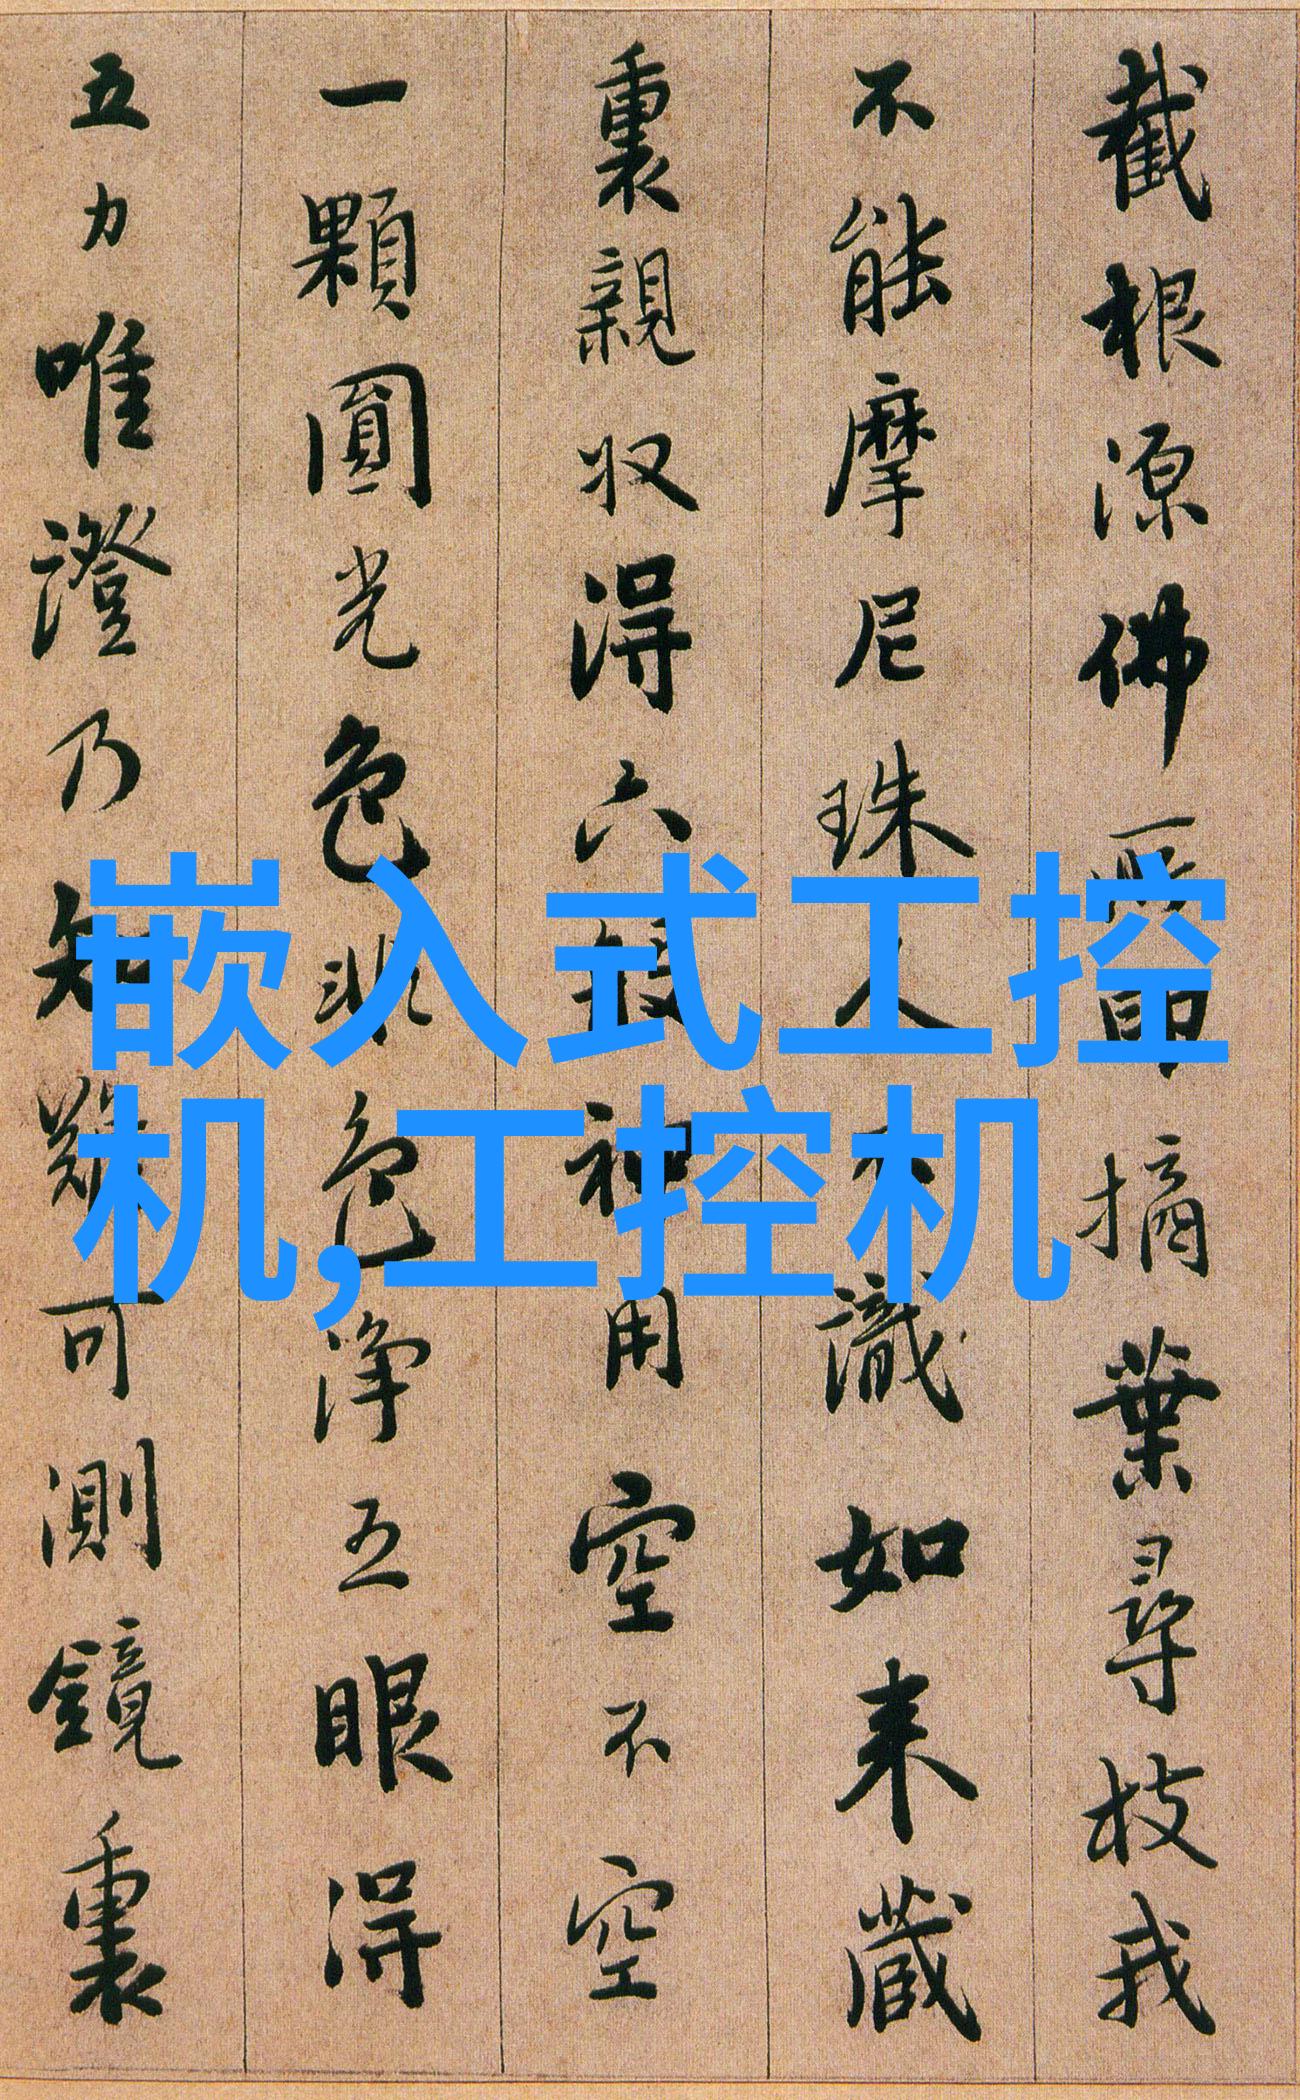 截根源佛所印摘葉尋枝我
不能摩尼珠人不識如来藏
裏親収得六般神用空不空
一顆圓光色非色淨五眼得
五力唯證乃知難可測鏡裏
嵌入式工控
机,工控机